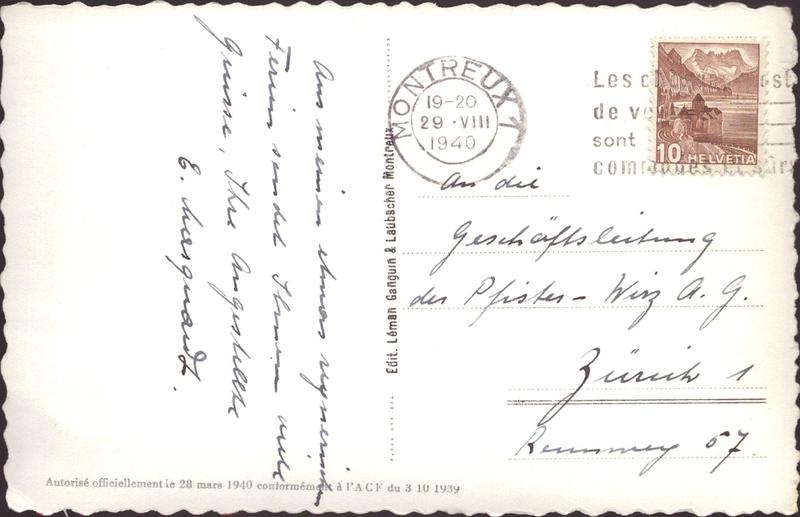 Aus meinen etwas regnerischen
Ferien sendet Ihnen viele
Grüsse, Ihre Angestellte
E. Marquardt.
Edit. Léman Ganguin & Laubscher Montreux
MONTREUX 1
19-20
29·VIII
1940
Les
de
sont
HELVETIA
10
An die
Geschäftsleitung
der Pfister-Wirz A.G.
Zürich 1
Rennweg 57.
Autorisé officiellement le 28 mars 1940 conformément à l'ACF du 3 10 1939